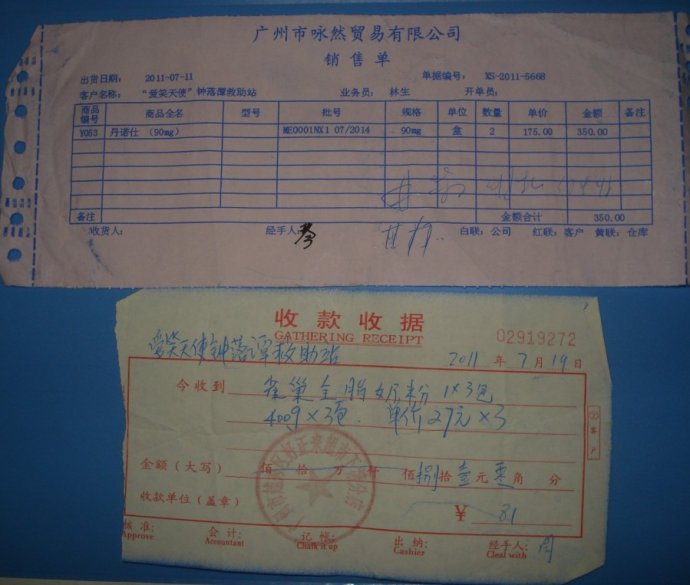 广州市咏然贸易有限公司
销售单
出货日期: 2011-07-11 单据编号: XS-2011-5668
客户名称: “爱笑天使”钟落潭救助站 业务员: 林生 开单员:
商品编号 商品全名 型号 批号 规格 单位 数量 单价 金额 备注
Y053 丹诺仕 (90mg) ME0001NX1 07/2014 90mg 盒 2 175.00 350.00
备注 金额合计 350.00
收货人: 经手人: 白联: 公司 红联: 客户 黄联: 仓库
收款收据
GATHERING RECEIPT 02919272
爱笑天使钟落潭救助站 2011 年 7 月 19 日
今收到 雀巢全脂奶粉 1×3包
400g×3包. 单价27元×3
金额(大写) 佰 拾 万 仟 佰 捌 拾 壹 元 零 角 分
收款单位(盖章) ¥ 81
核准: 会计: 记帐: 出纳: 经手人: 周
Approve Accountant Chalk it up Cashier Cleal with
客户